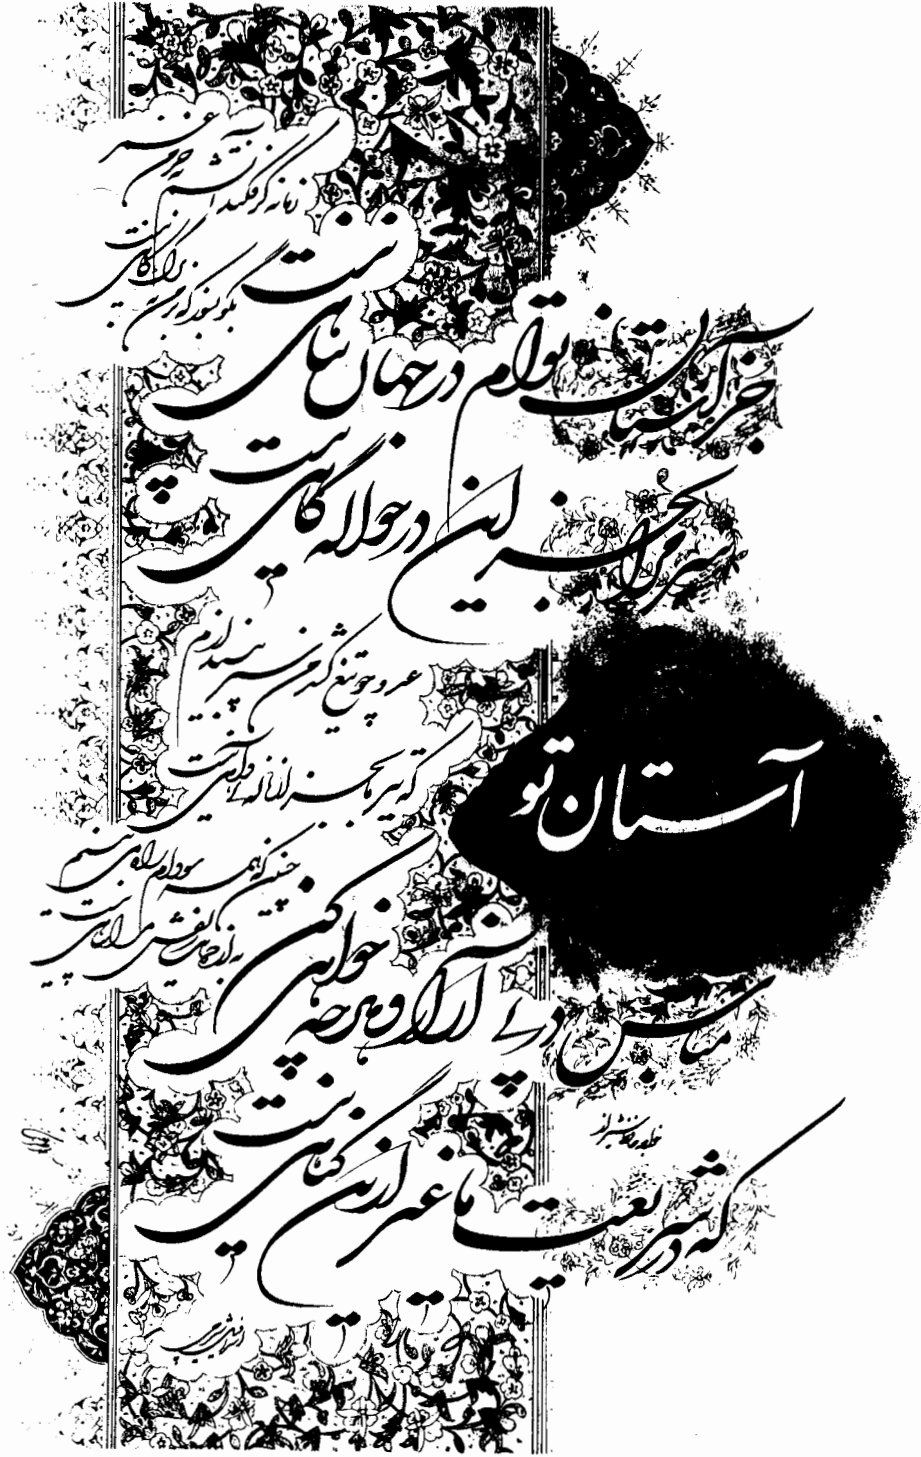 زمانه گر فکند آتشم به خرمن عمر
بگو بسوز که بر من به برگ کاهی نیست
جز آستان توام در جهان پناهی نیست
سر مرا بجز این در حواله گاهی نیست
عدو چو تیغ کشد من سپر بیندازم
که تیر بجز از ناله‌ای و آهی نیست
آستان تو
چنین که از همه سو دام راه می بینم
به از حمایت زلفش مرا پناهی نیست
مباش در پی آزار و هر چه خواهی کن
که در شریعت ما غیر ازین گناهی نیست
خواجه حافظ شیراز